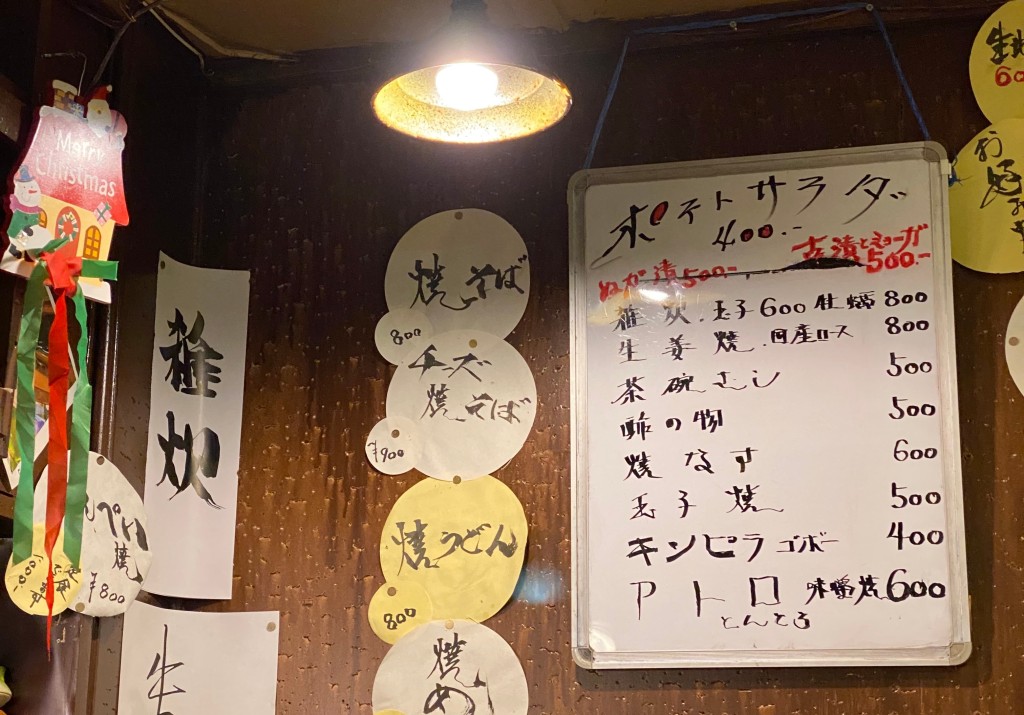 Merry
Christmas
雑炊
ぺい
焼
¥800
焼そば
800
チーズ
焼そば
¥900
焼うどん
800
焼
めし
ポテトサラダ
400.-
古漬とミョーガ
500.-
ぬか漬500.-
雑炊.玉子600 牡蠣800
生姜焼.国産ロース 800
茶碗むし 500
酢の物 500
焼なす 600
玉子焼 500
キンピラゴボー 400
Pトロ味噌焼600
とんとろ
生
60
お好み